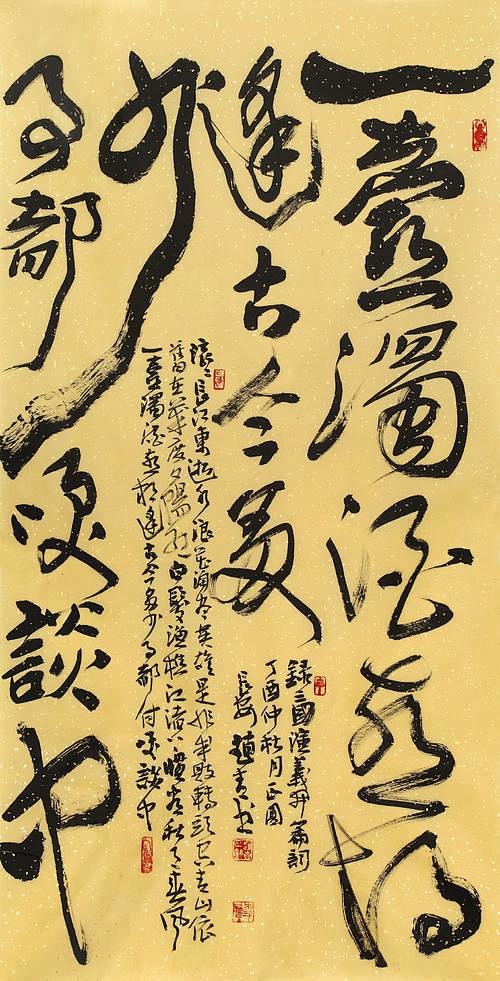 一壺濁酒喜相
逢古今多
少
事都咲談中
滾〻長江東逝水浪花淘盡英雄是非成敗轉頭空青山依
舊在幾度夕陽紅白髮漁樵江渚上慣看秋月春風
一壺濁酒喜相逢古今多少事都付咲談中
錄三國演義開篇詞
丁酉仲秋月正圓
長安趙青書